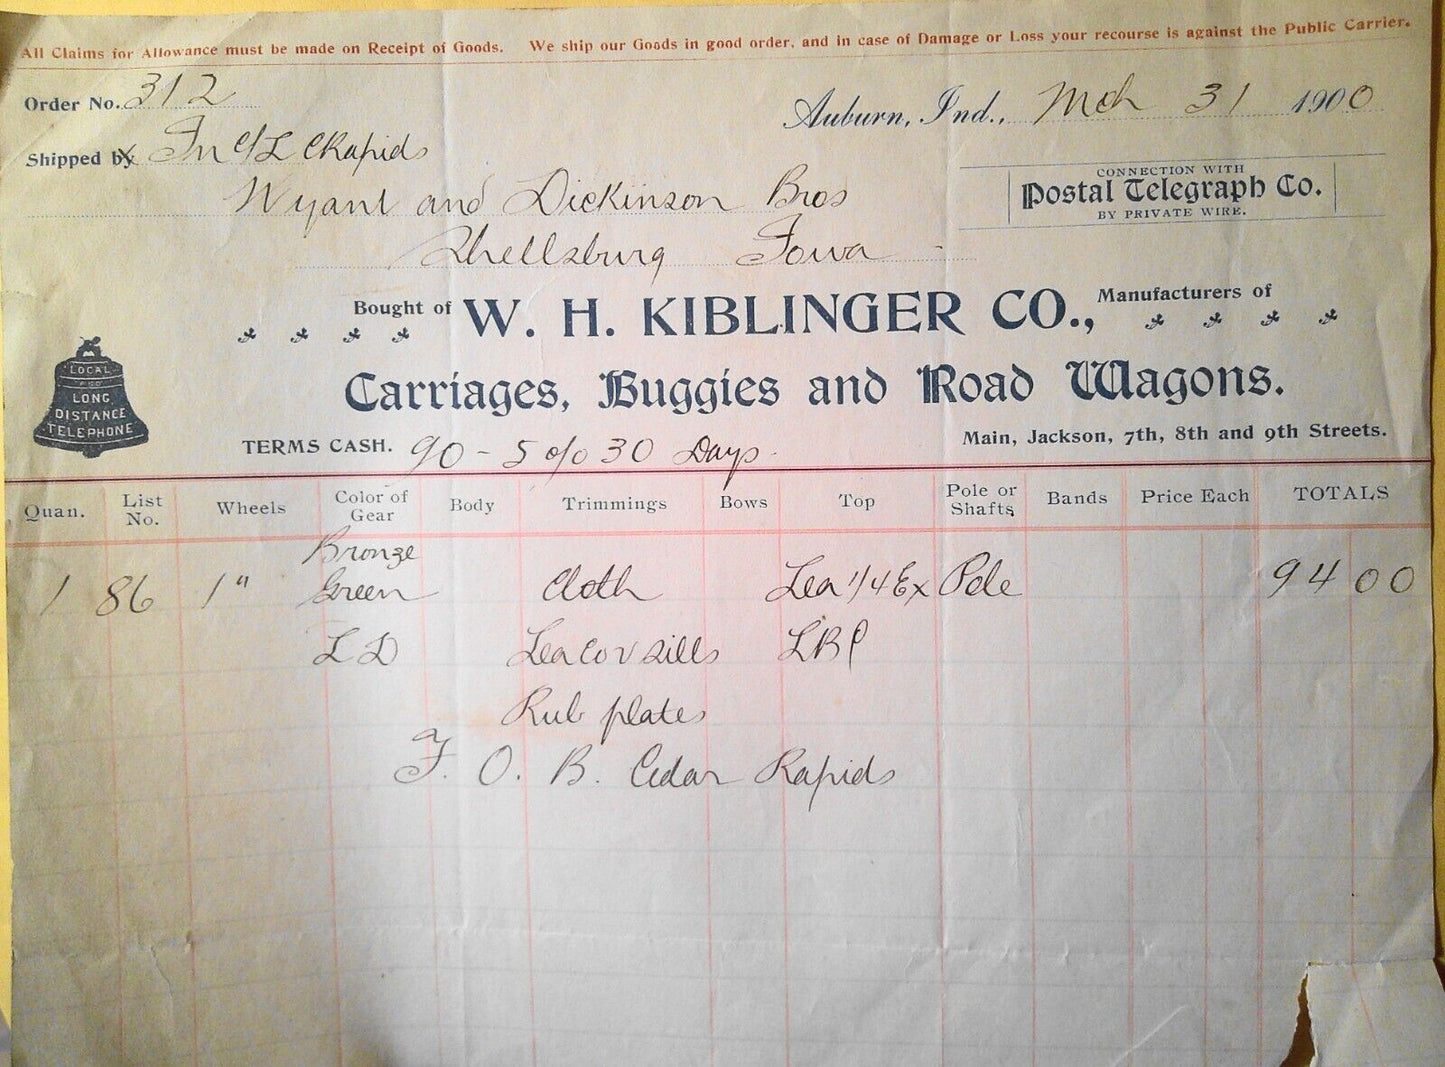 All Claims for Allowance must be made on Receipt of Goods. We ship our Goods in good order, and in case of Damage or Loss your recourse is against the Public Carrier.
Order No. 312
Auburn, Ind., Mch 31 1900
Shipped by In C/L CRapids
CONNECTION WITH
Postal Telegraph Co.
BY PRIVATE WIRE.
Wyant and Dickinson Bros
Shellsburg Iowa
Bought of W. H. KIBLINGER CO., Manufacturers of
Carriages, Buggies and Road Wagons.
LOCAL
AND
LONG
DISTANCE
TELEPHONE
TERMS CASH. 90 - 5 % 30 Days.
Main, Jackson, 7th, 8th and 9th Streets.
Quan. List No. Wheels Color of Gear Body Trimmings Bows Top Pole or Shafts Bands Price Each TOTALS
Bronze
1 86 1" Green Cloth Lea 1/4 Ex Pole 94 00
L D Lea cov sills LBP
Rub plates
F. O. B. Cedar Rapids